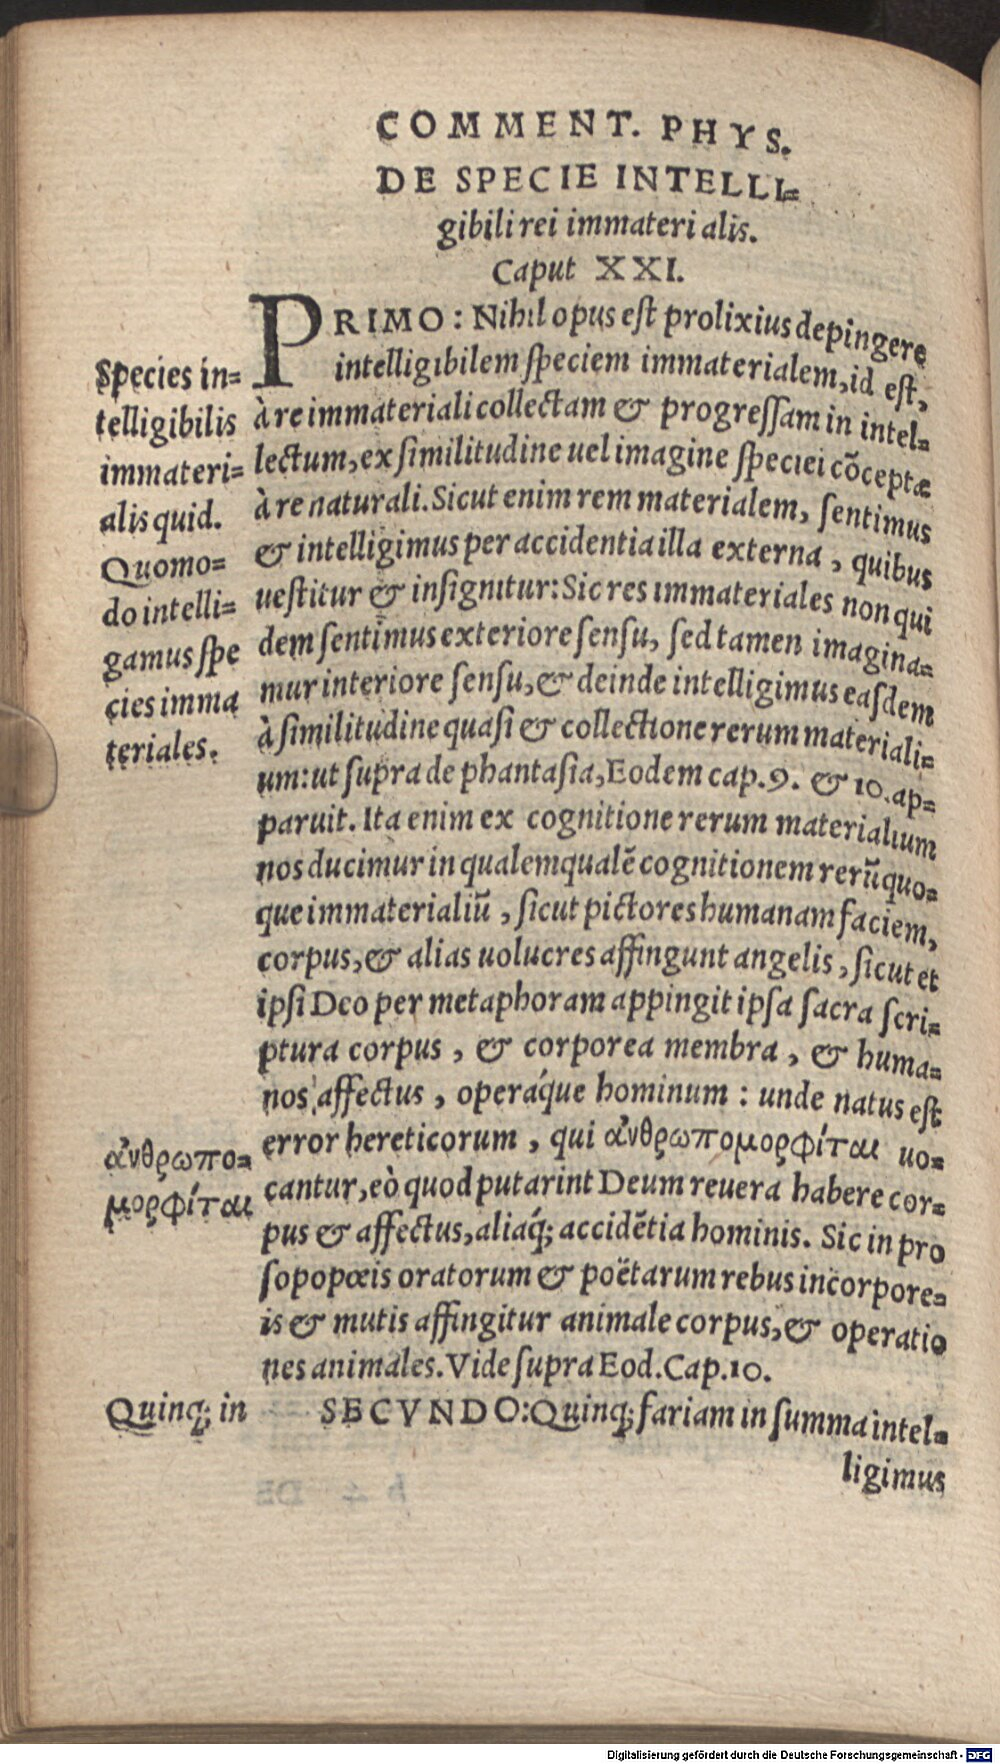 COMMENT. PHYS.
DE SPECIE INTELLI=
gibili rei immaterialis.
Caput XXI.
PRIMO: Nihil opus est prolixius depingere
intelligibilem speciem immaterialem, id est,
à re immateriali collectam & progressam in intel=
lectum, ex similitudine uel imagine speciei cõceptæ
à re naturali. Sicut enim rem materialem, sentimus
& intelligimus per accidentia illa externa, quibus
uestitur & insignitur: Sic res immateriales non qui
dem sentimus exteriore sensu, sed tamen imagina=
mur interiore sensu, & deinde intelligimus easdem
à similitudine quasi & collectione rerum materiali=
um: ut supra de phantasia, Eodem cap. 9. & 10. ap=
paruit. Ita enim ex cognitione rerum materialium
nos ducimur in qualemqualẽ cognitionem rerũ quo=
que immaterialiũ, sicut pictores humanam faciem,
corpus, & alias uolucres affingunt angelis, sicut et
ipsi Deo per metaphoram appingit ipsa sacra scri=
ptura corpus, & corporea membra, & huma=
nos affectus, operáque hominum: unde natus est
error hereticorum, qui ἀνθρωπομορφίται uo=
cantur, eò quod putarint Deum reuera habere cor=
pus & affectus, aliaq́; accidẽtia hominis. Sic in pro
sopopœis oratorum & poëtarum rebus incorpore=
is & mutis affingitur animale corpus, & operatio
nes animales. Vide supra Eod. Cap. 10.
SECVNDO: Quinq; fariam in summa intel=
ligimus
Species in=
telligibilis
immateri=
alis quid.
Quomo=
do intelli=
gamus spe
cies imma
teriales.
ἀνθρωπο=
μορφίται
Quinq; in
Digitalisierung gefördert durch die Deutsche Forschungsgemeinschaft - DFG